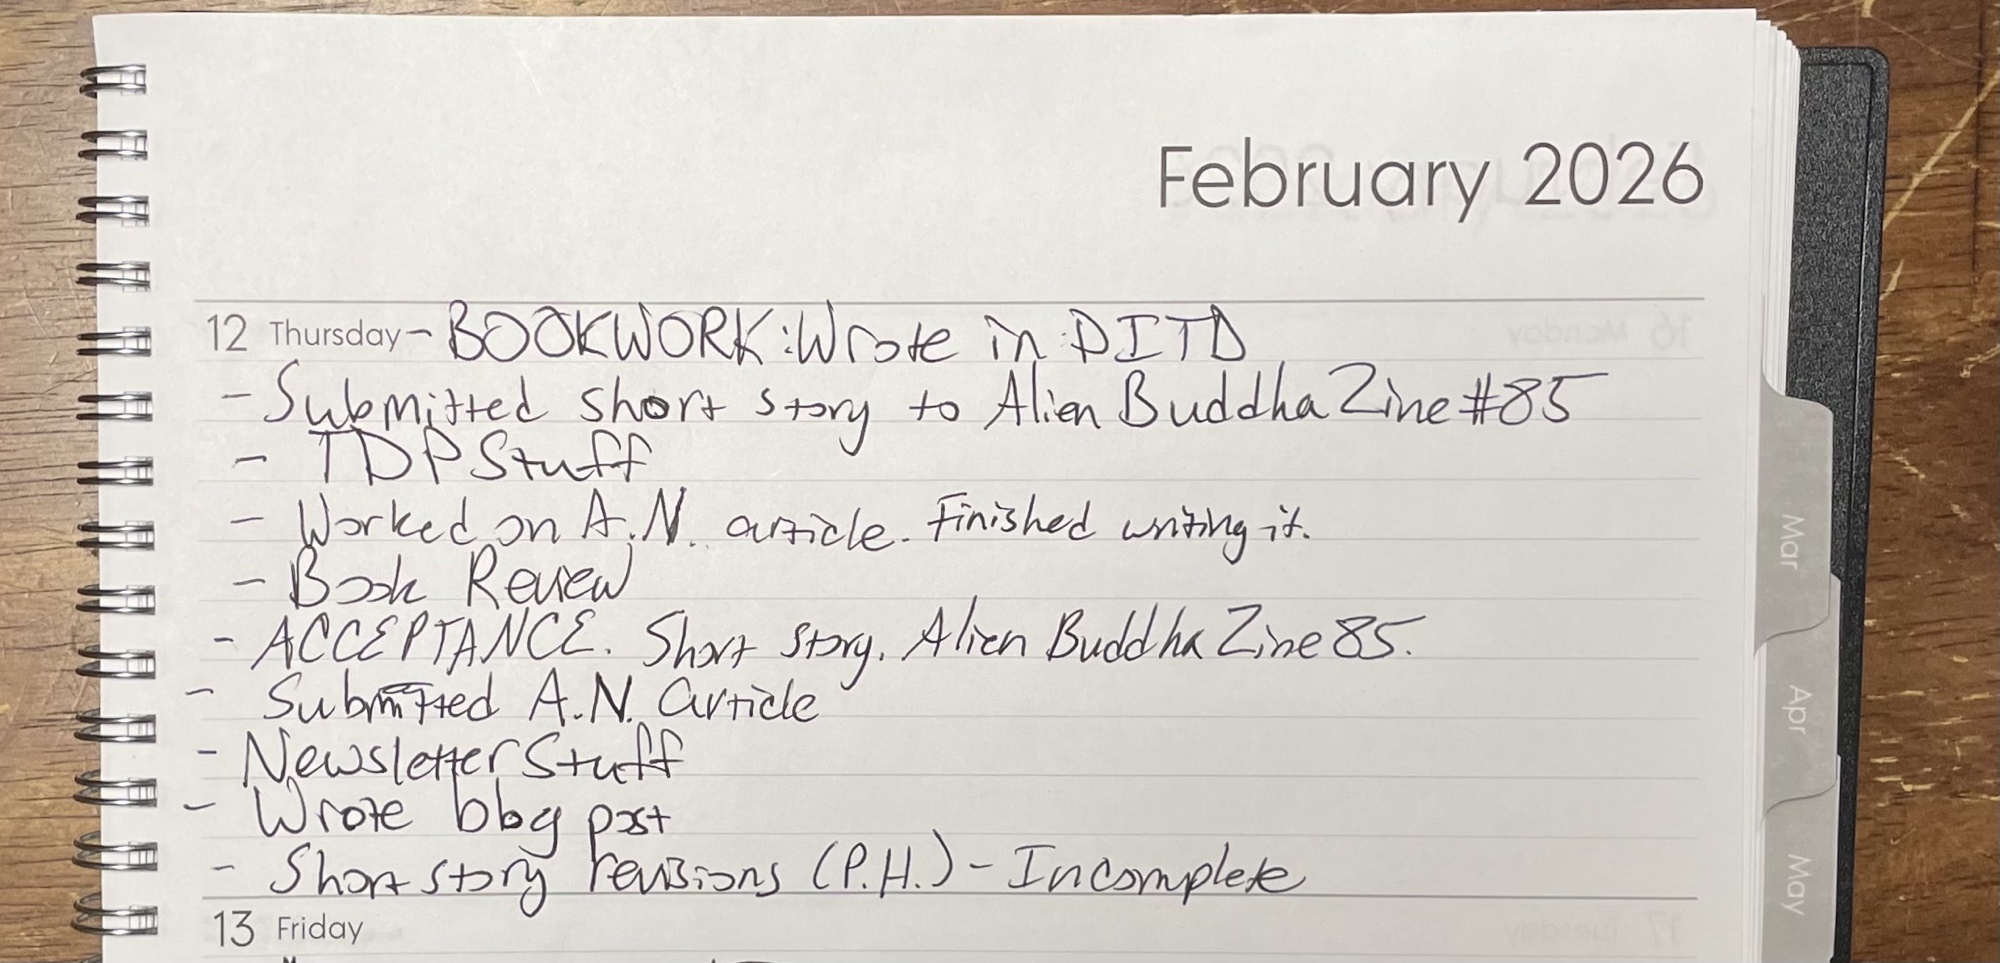 February 2026
12 Thursday - BOOKWORK: Wrote in DITD
- Submitted short story to Alien Buddha Zine #85
- TDP Stuff
- Worked on A.N. article. Finished writing it.
- Book Review
- ACCEPTANCE. Short story. Alien Buddha Zine 85.
- Submitted A.N. article
- Newsletter Stuff
- Wrote blog post
- Short story revisions (P.H.) - Incomplete
13 Friday
Mar
Apr
May